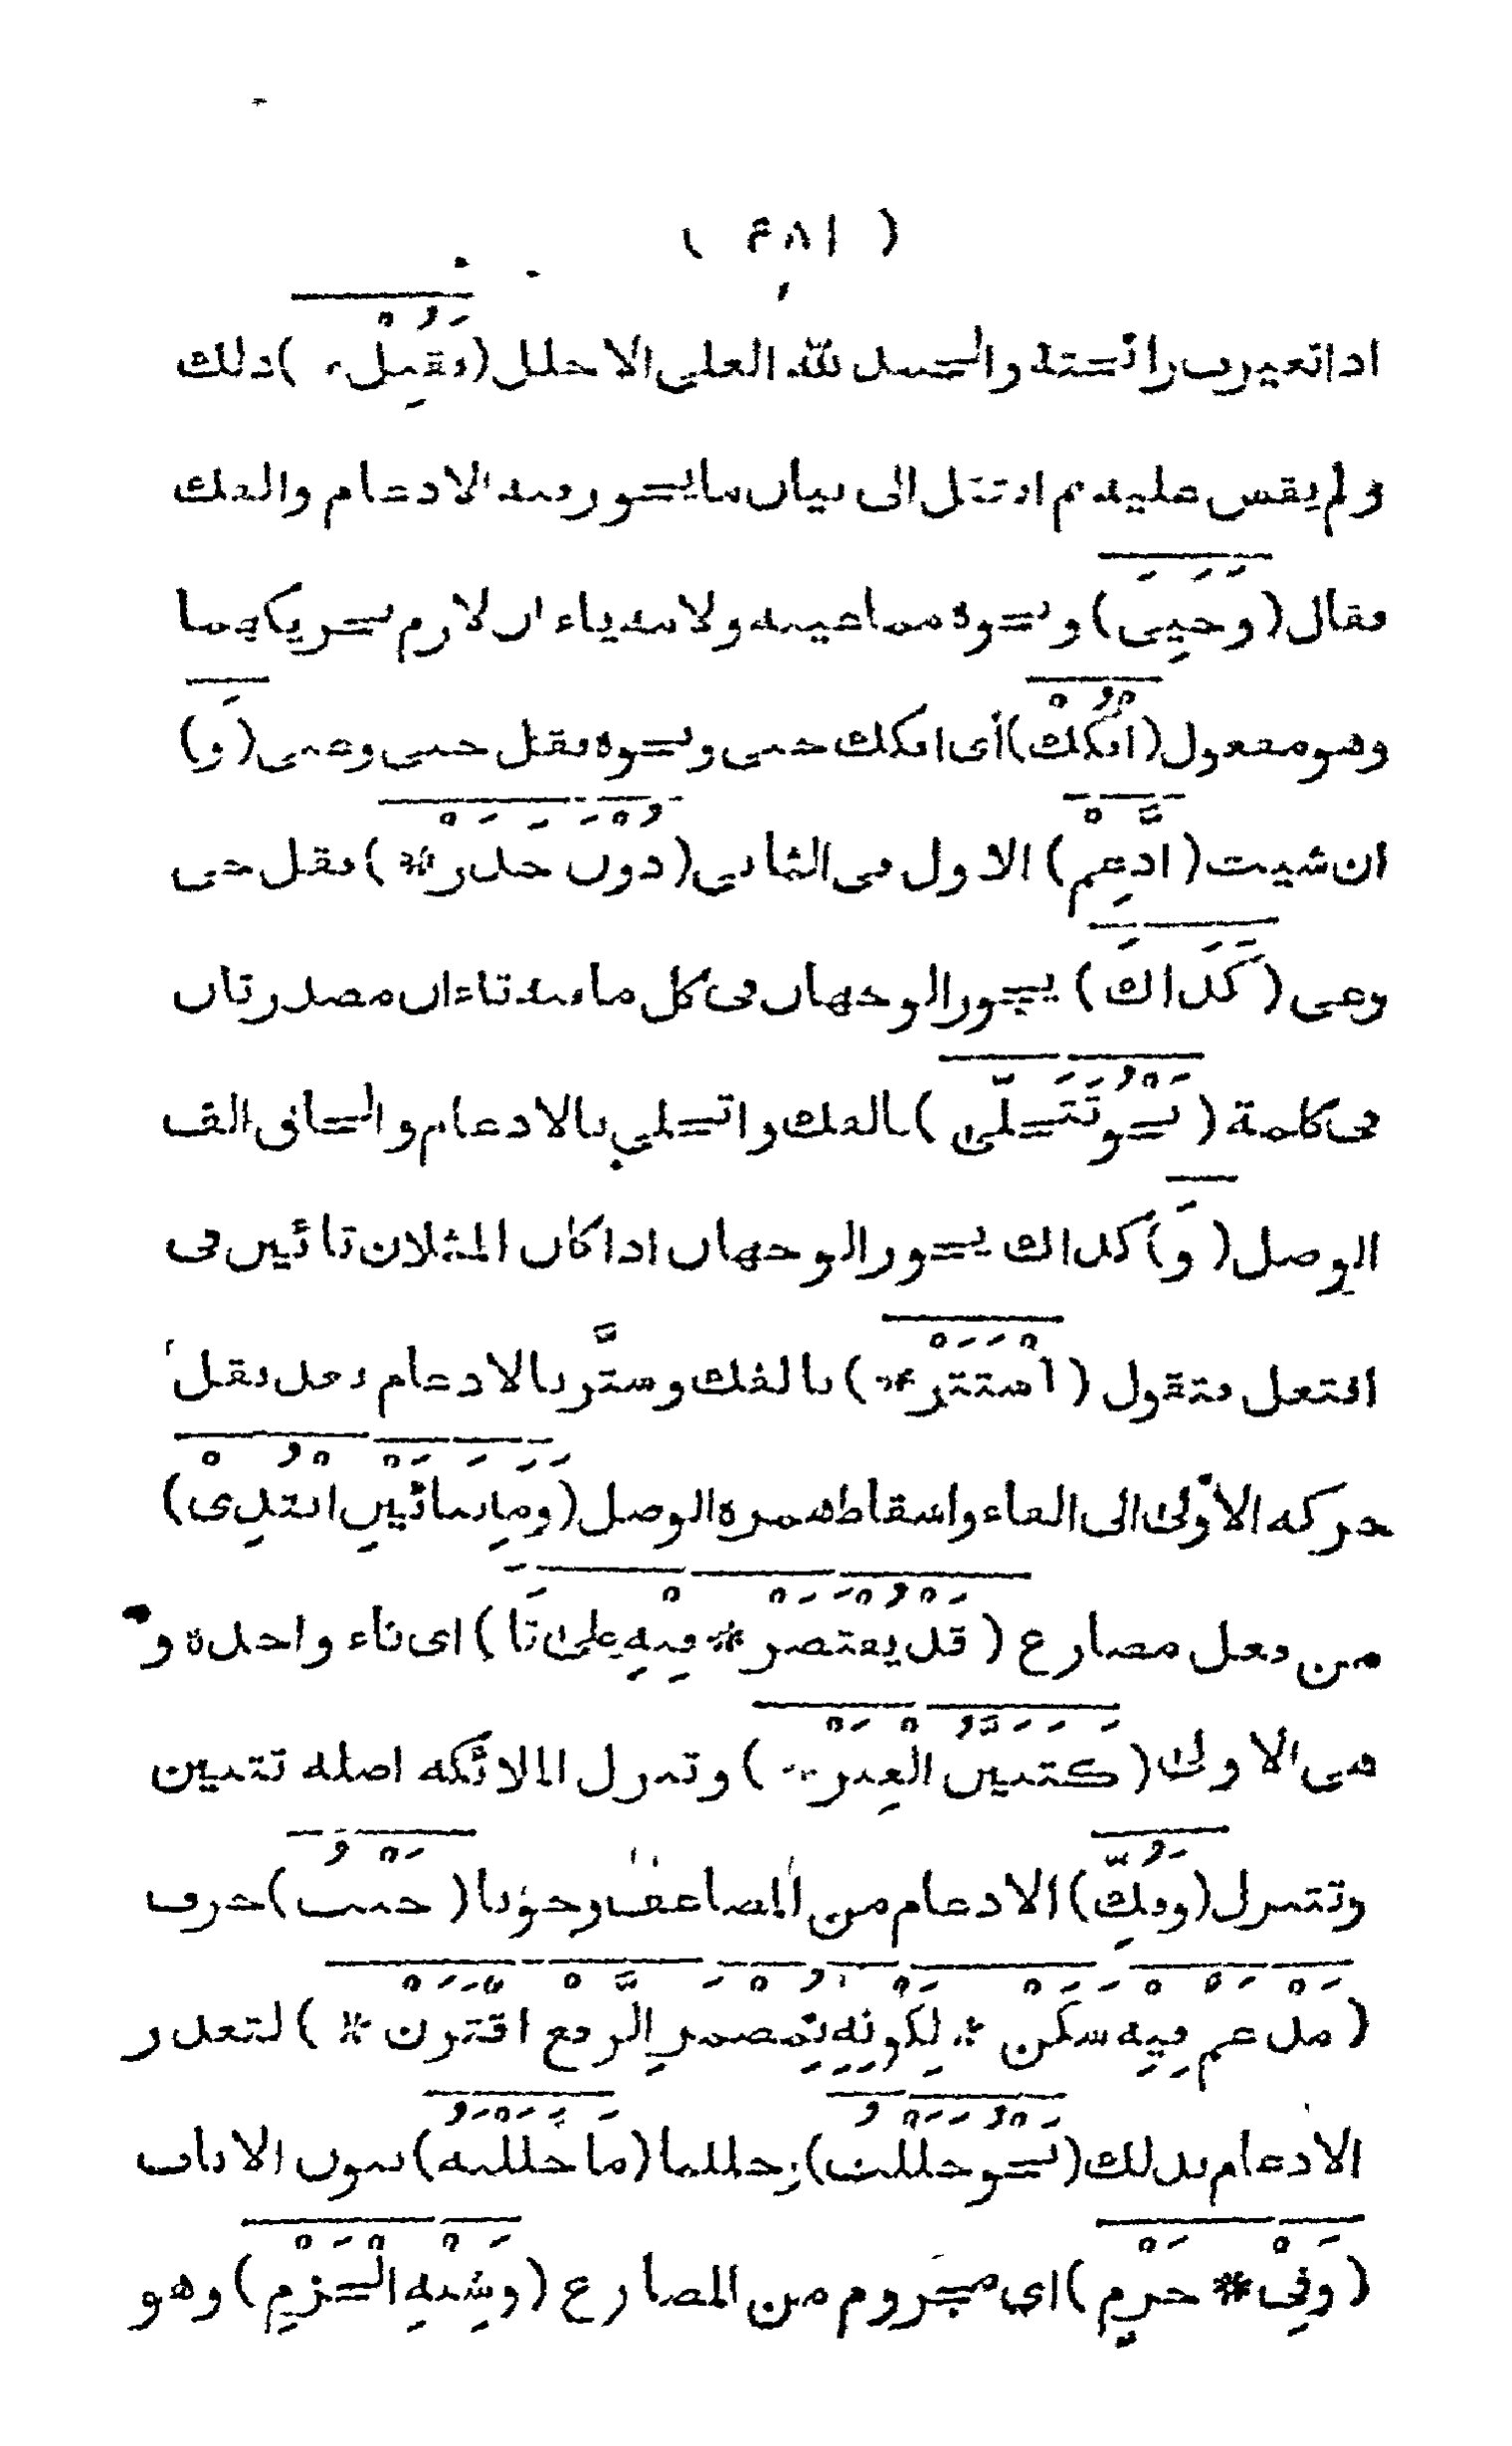 ( ٤٨١ )
اذا تغيرت رائحته والحمد لله العلي الاجلل (فَقُبِلْ * ) ذلك
ولم يقس عليه ثم انتقل الى بيان ما يجوز فيه الادغام والفك
فقال (وَحَيِىَ) ونحوه مما عينه ولامه ياءان لازم تحريكهما
وهو مفعول (افْكُكْ) أى افكك حيى ونحوه فقل حيى وعيى (وَ)
ان شيت (ادَّغِمْ) الاول فى الثانى (دُوْنَ حَذَرْ *) فقل حى
وعى (كَذَاكَ) يجوز الوجهان فى كل ما فيه تاءان مصدرتان
فى كلمة (نَحْوُ تَتَجَلّى) بالفك واتجلي بالادغام والحاق الف
الوصل (وَ) كذاك يجوز الوجهان اذا كان المثلان تائين فى
افتعل فتقول (اسْتَتَرْ *) بالفك وستَّر بالادغام بعد نقل
حركه الاولى الى الفاء واسقاط همزة الوصل (وَمَا بِتَائَيْنِ ابْتُدِىْ)
من فعل مضارع (قَدْ يُقْتَصَرْ * فِيْهِ عَلى تَا) اى تاء واحدة و
هى الاولى (كَتَبَيَّنُ الْعِبَرْ *) وتنزل الملائكه اصله تتبين
وتتنزل (وَفُكِّ) الادغام من المضاعف وجوبا (حَيْثُ) حرف
(مُدْغَمٌ فِيْهِ سَكَنْ * لِكَوْنِهِ بِمُضْمَرِ الرَّفْعِ اقْتَرَنْ *) لتعذر
الادغام بذلك (نَحْوُ حَلَلْتُ) وحللنا (مَا حَلَلْتُهُ) بنون الاناث
(وَفِىْ * جَزْمٍ) اي مجزوم من المضارع (وَشِبْهِ الْجَزْمِ) وهو